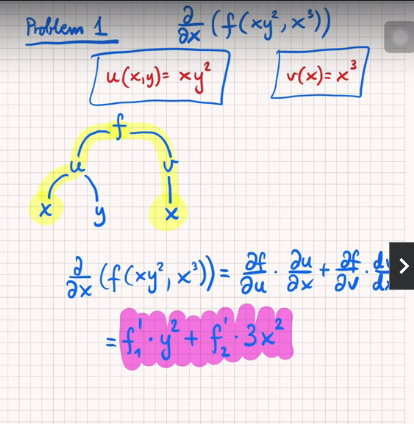 Problem 1
∂/∂x (f(xy², x³))
u(x,y) = xy²
v(x) = x³
f
u v
x y x
∂/∂x (f(xy², x³)) = ∂f/∂u · ∂u/∂x + ∂f/∂v ·
= f₁' · y² + f₂' · 3x²